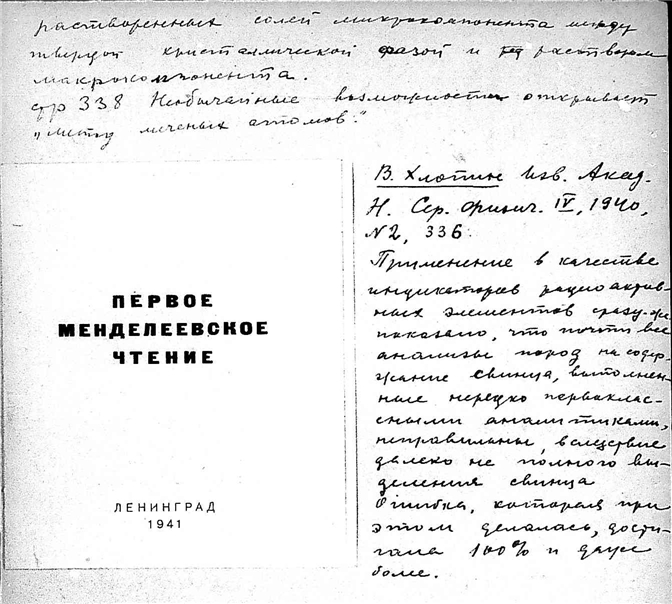 растворенных солей микрокомпонента между
твердой кристаллической фазой и раствором
макрокомпонента.
стр 338 Необычайные возможности открывает
„метод меченых атомов."
ПЕРВОЕ
МЕНДЕЛЕЕВСКОЕ
ЧТЕНИЕ
ЛЕНИНГРАД
1941
В. Хлопин Изв. Акад.
Н. Сер. Физич. IV, 1940,
N2, 336.
Применение в качестве
индикаторов радиоактив-
ных элементов сразу-же
показало, что почти все
анализы пород на содер-
жание свинца, выполнен-
ные нередко первоклас-
сными аналитиками,
неправильны, вследствие
далеко не полного вы-
деления свинца
Ошибка, которая при
этом делалась, дости-
гала 100% и даже
более.